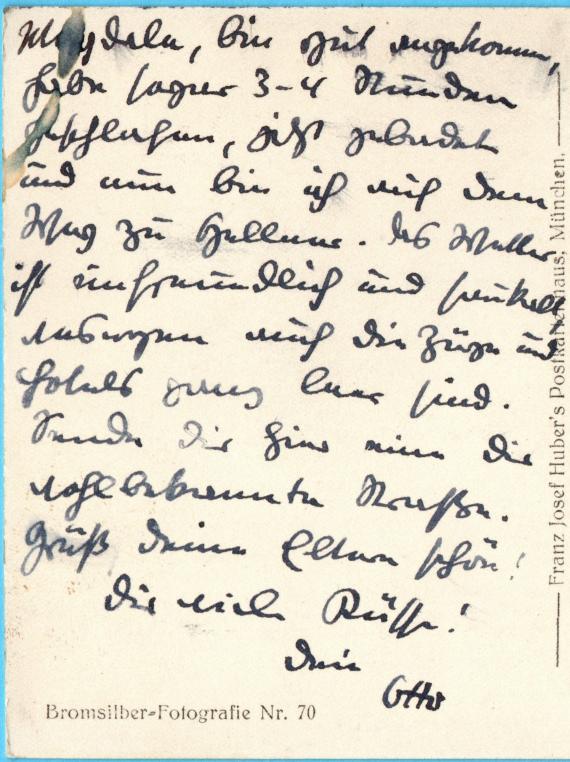 bin gut angekommen,
habe sogar 3-4 Stunden
geschlafen, jetzt gebadet
und nun bin ich auf dem
Weg zu Hellmer. Das Wetter
ist unfreundlich und
auch die Züge und
Hotels ganz leer sind.
Sende dir hier eine dir
wohlbekannte Straße.
Grüß deine Eltern schön!
Dir viele Küsse!
Dein
Otto
Bromsilber=Fotografie Nr. 70
Franz Josef Huber's Postkartenhaus, München.